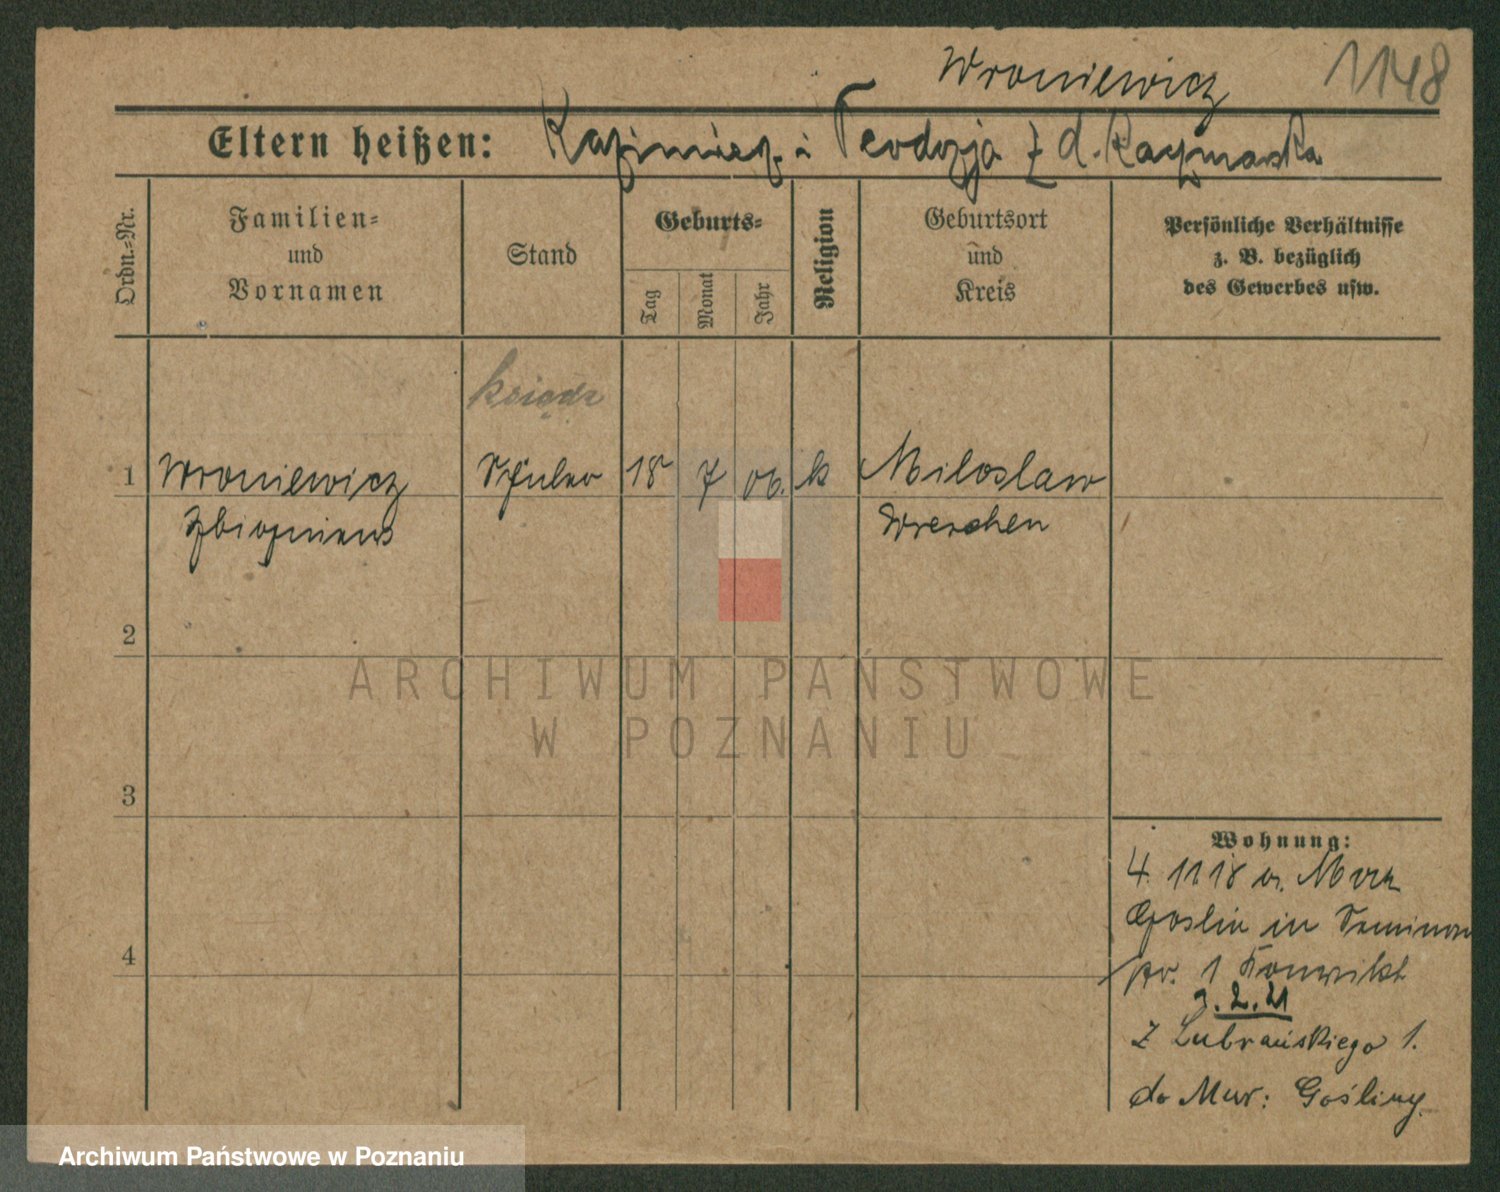 Wroniewicz 1148
Eltern heißen: Kazimierz i Teodozja z d. Kaczmarska
Ordn.=Nr.
Familien=
und
Vornamen
Stand
Geburts=
Tag
Monat
Jahr
Religion
Geburtsort
und
Kreis
Persönliche Verhältnisse
z. B. bezüglich
des Gewerbes usw.
ksiądz
1 Wroniewicz Schüler 18 7 06. k Miloslaw
Zbigniew Wreschen
2
ARCHIWUM PAŃSTWOWE
W POZNANIU
3
Wohnung:
4. 11 18 a. Mur
Goslin in Seminar
pr. 1 Konwikt
3.2.21
Z Lubrańskiego 1.
4
do Mur: Gośliny.
Archiwum Państwowe w Poznaniu